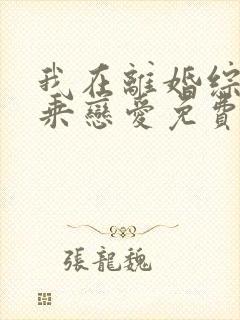 我在離婚綜
乘戀愛免費
張龍魏